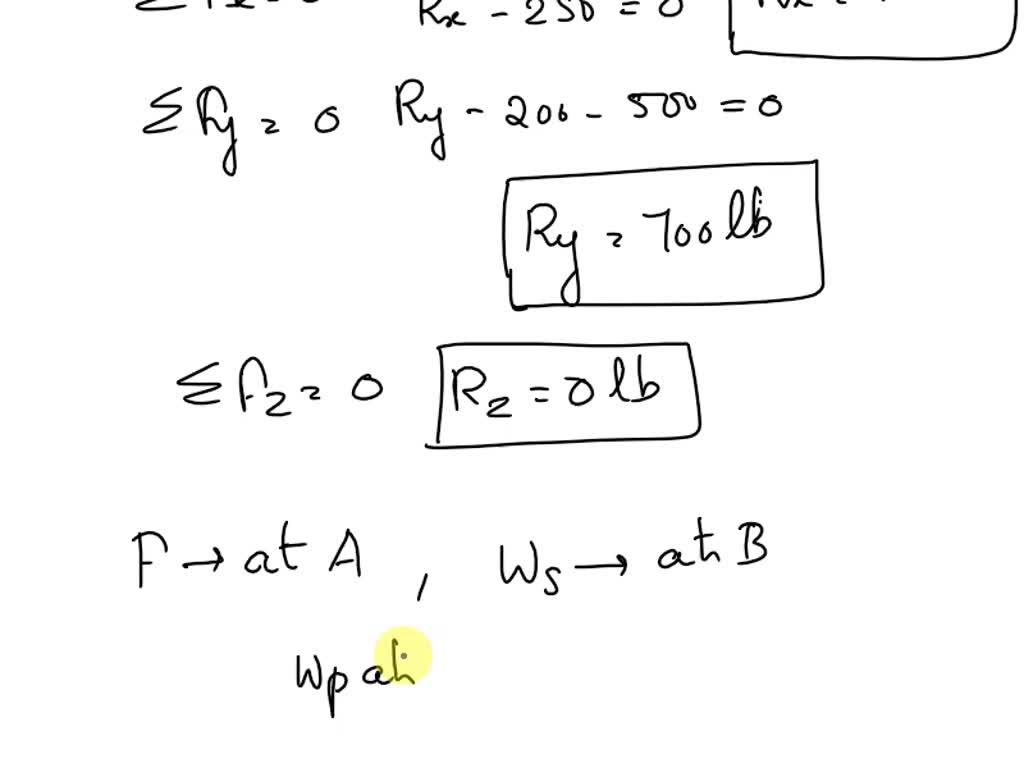 Rx - 250 = 0
ΣFy = 0 Ry - 200 - 500 = 0
Ry = 700 lb
ΣFz = 0 Rz = 0 lb
F → at A , Ws → at B
Wp at